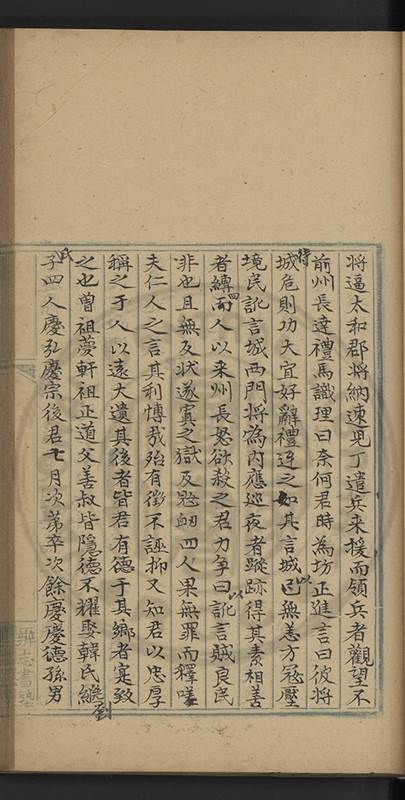 將逼太和郡將納速兒丁遣兵來援而領兵者觀望不
前州長達禮馬識理曰奈何君時為坊正進言曰彼將待
城危則功大宜好辭禮迎之如其言城以無恙方寇壓
境民訛言城西門將為內應巡夜者蹤跡得其素相善
者縛四人以來州長怒欲殺之君力爭曰以訛言賊良民
非也且無反狀遂寘之獄及戢四人果無罪而釋嗟
夫仁人之言其利博哉殆有徵不誣抑又知君以忠厚
稱之于人以遠大遺其後者皆君有德于其鄉者寔致
之也曾祖夢軒祖正道父善叔皆隱德不耀娶韓氏繼劉氏
子四人慶弘慶宗後君七月次第卒次餘慶慶德孫男